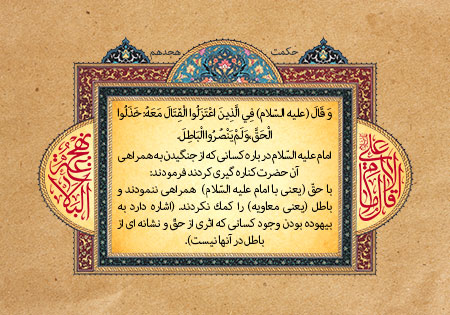 حکمت هجدهم
وَ قَالَ (علیه السّلام) فِي الَّذِينَ اعْتَزَلُوا الْقِتَالَ مَعَهُ: خَذَلُوا
الْحَقَّ، وَ لَمْ يَنْصُرُوا الْبَاطِلَ.
امام علیه السّلام در باره کسانی که از جنگیدن به همراهی
آن حضرت کناره گیری کردند فرمودند:
با حقّ (یعنی با امام علیه السّلام) همراهی ننمودند و
باطل (یعنی معاویه) را کمك نکردند. (اشاره دارد به
بیهوده بودن وجود کسانی که اثری از حقّ و نشانه ای از
باطل در آنها نیست).
قال الامام علی
نهج البلاغه